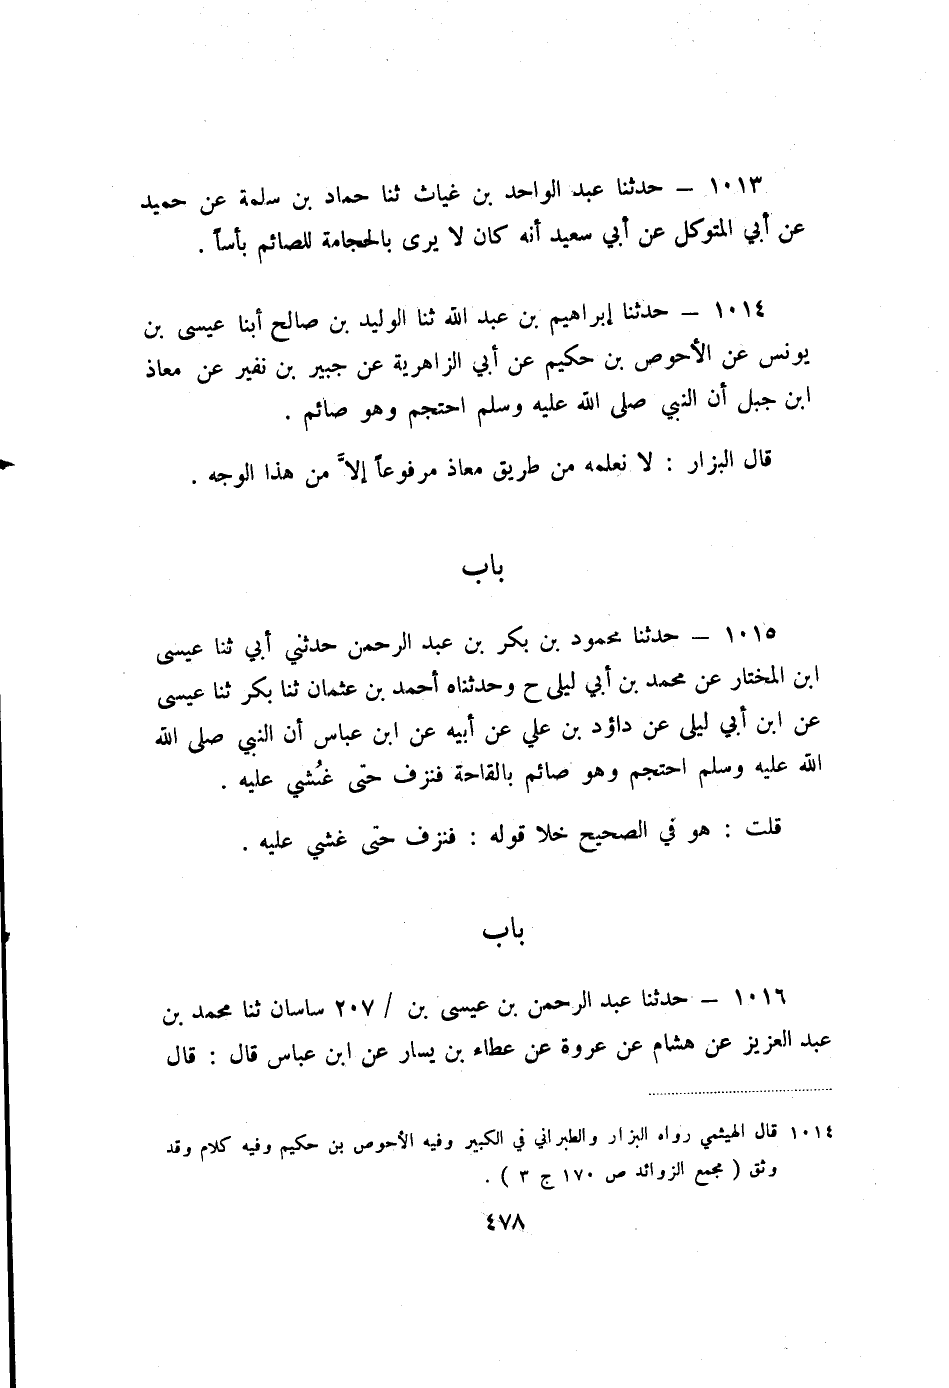 ١٠١٣ – حدثنا عبد الواحد بن غياث ثنا حماد بن سلمة عن حميد
عن أبي المتوكل عن أبي سعيد أنه كان لا يرى بالحجامة للصائم بأساً .
١٠١٤ – حدثنا إبراهيم بن عبد الله ثنا الوليد بن صالح أبنا عيسى بن
يونس عن الأحوص بن حكيم عن أبي الزاهرية عن جبير بن نفير عن معاذ
ابن جبل أن النبي صلى الله عليه وسلم احتجم وهو صائم .
قال البزار : لا نعلمه من طريق معاذ مرفوعاً إلاَّ من هذا الوجه .
باب
١٠١٥ – حدثنا محمود بن بكر بن عبد الرحمن حدثني أبي ثنا عيسى
ابن المختار عن محمد بن أبي ليلى ح وحدثناه أحمد بن عثمان ثنا بكر ثنا عيسى
عن ابن أبي ليلى عن داؤد بن علي عن أبيه عن ابن عباس أن النبي صلى الله
الله عليه وسلم احتجم وهو صائم بالقاحة فنزف حتى غُشي عليه .
قلت : هو في الصحيح خلا قوله : فنزف حتى غشي عليه .
باب
١٠١٦ – حدثنا عبد الرحمن بن عيسى بن / ٢٠٧ ساسان ثنا محمد بن
عبد العزيز عن هشام عن عروة عن عطاء بن يسار عن ابن عباس قال : قال
١٠١٤ قال الهيثمي رواه البزار والطبراني في الكبير وفيه الأحوص بن حكيم وفيه كلام وقد
وثق ( مجمع الزوائد ص ١٧٠ ج ٣ ) .
٤٧٨